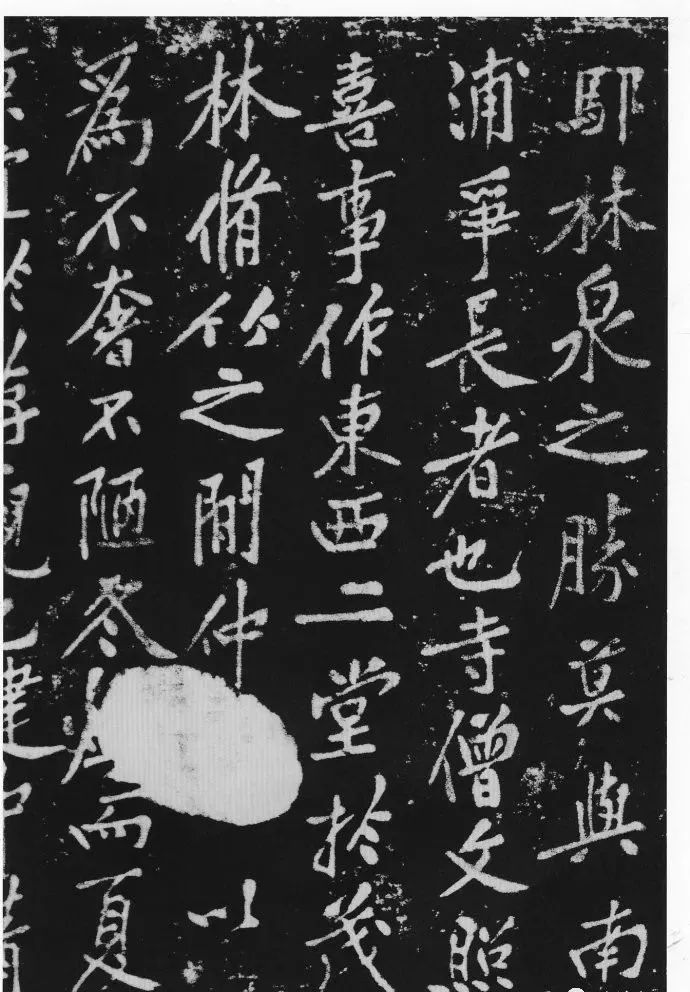 郡林泉之勝莫與南
浦爭長者也寺僧文照
喜事作東西二堂於茂
林脩竹之閒仲以
為不奢不陋冬而夏